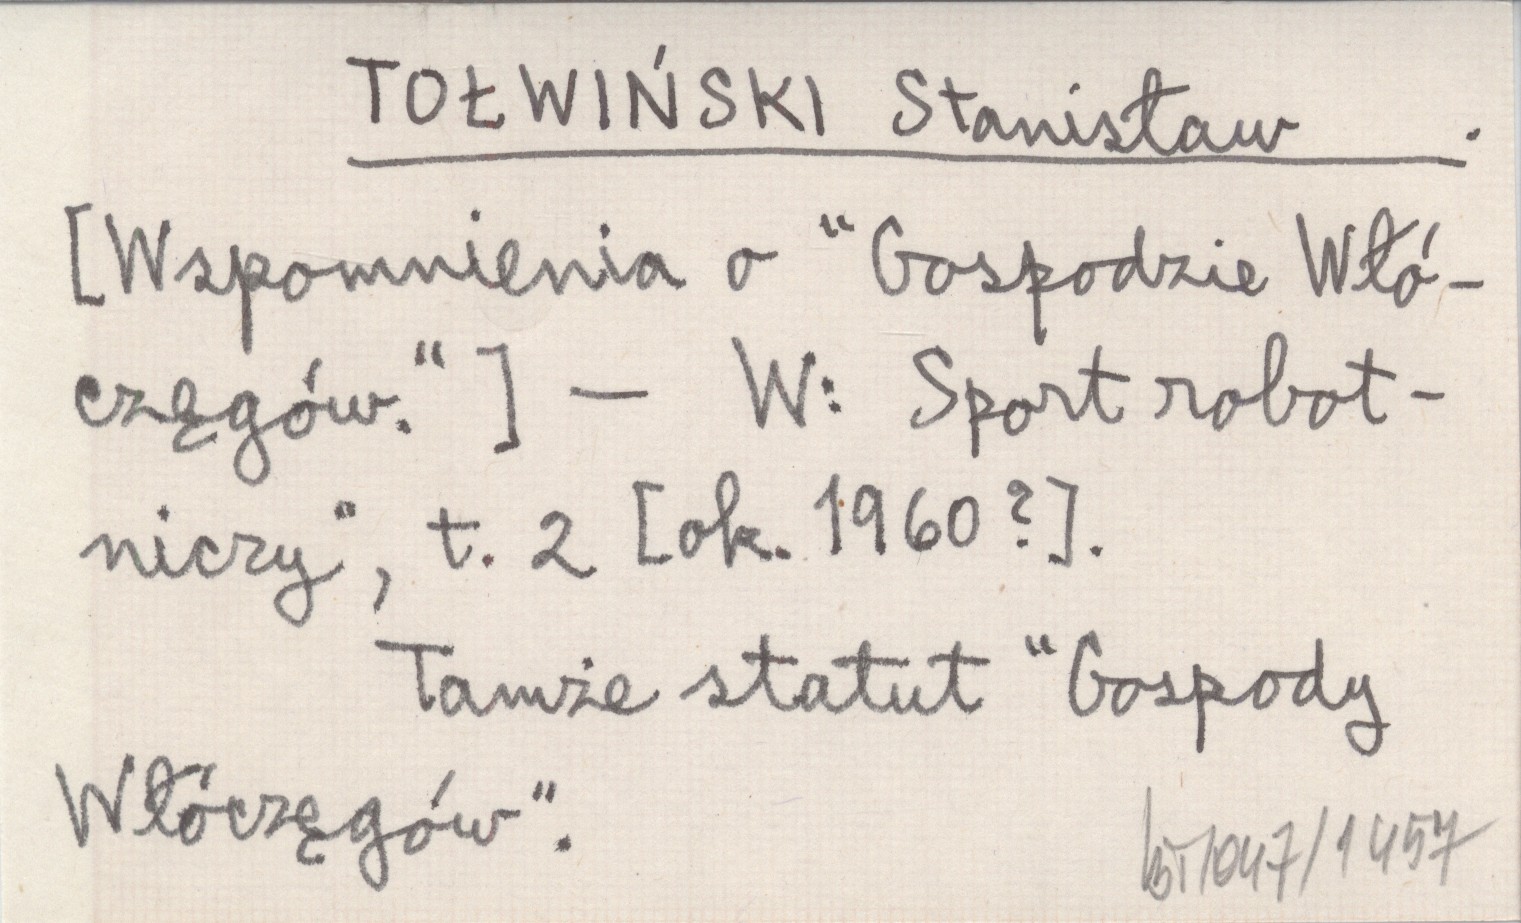 TOŁWIŃSKI Stanisław .
[Wspomnienia o "Gospodzie Włó-
częgów."] — W: Sport robot-
niczy", t. 2 [ok. 1960?].
Tamże statut "Gospody
Włóczęgów".
/047/1457